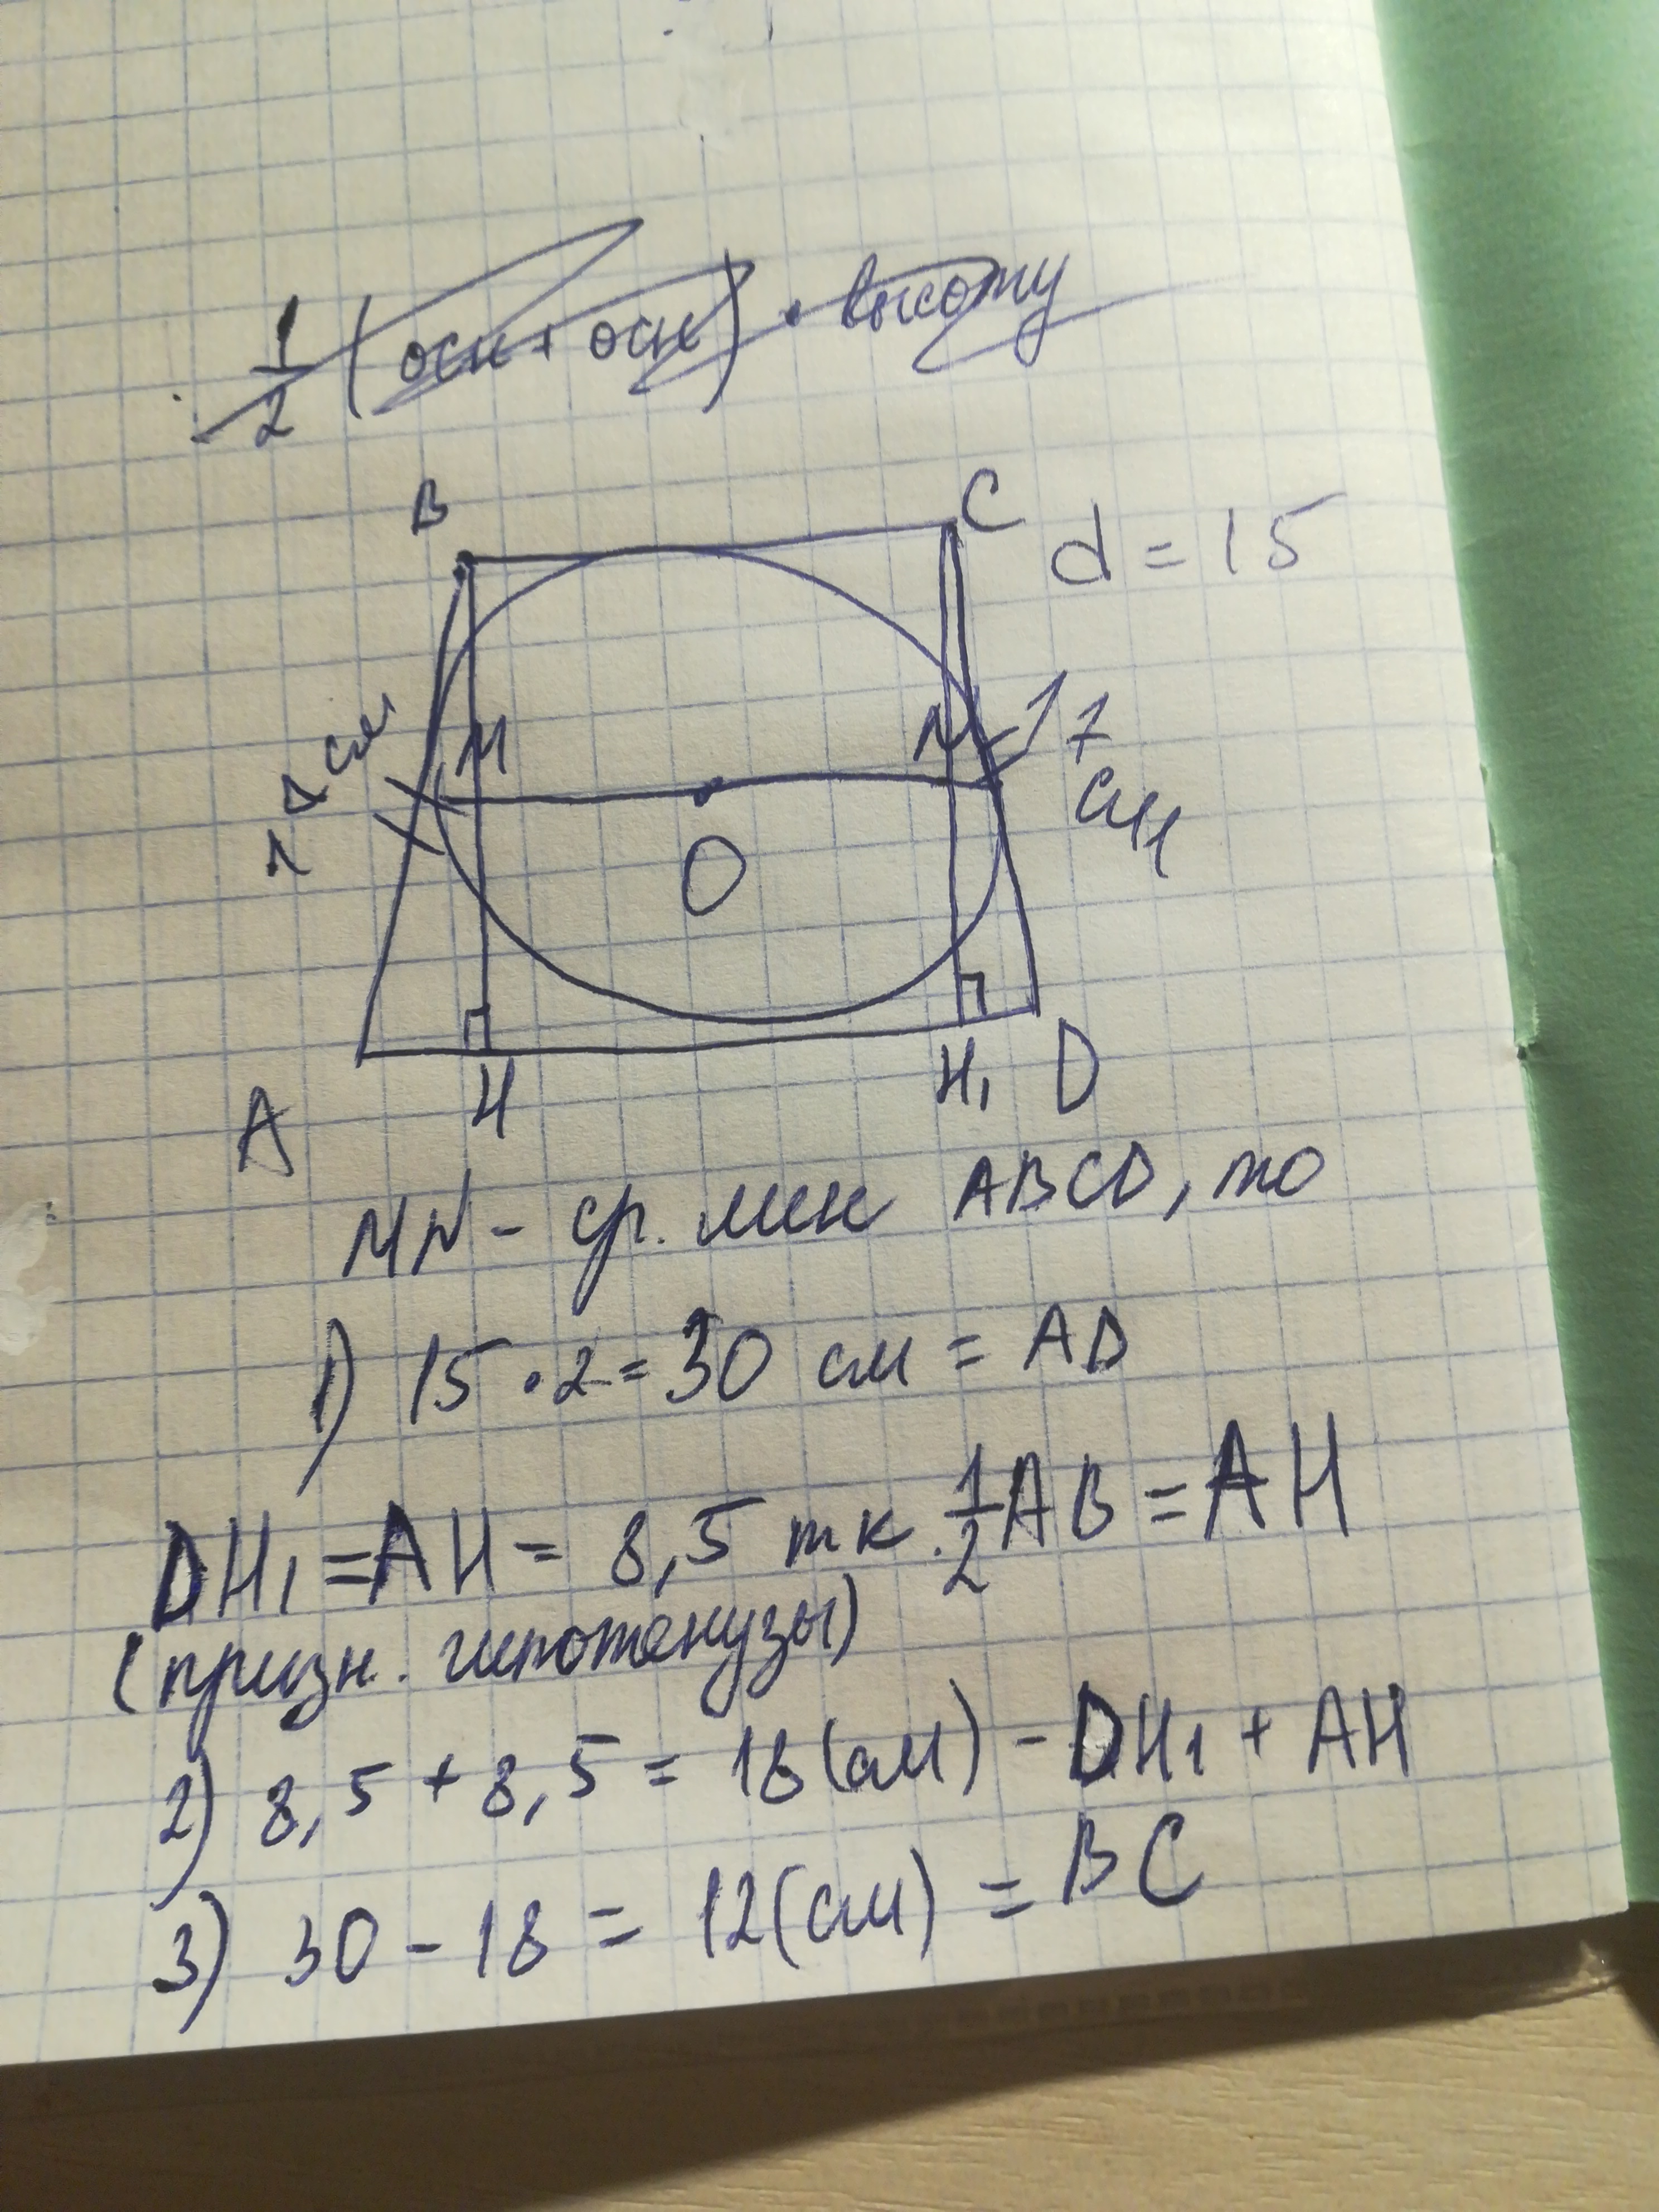 1/2 (осн + осн) · высоту
B
C
d = 15
17 см
M
N
17
см
O
A
H
H₁
D
MN - ср. лин ABCD, то
1) 15 · 2 = 30 см = AD
DH₁ = AH = 8,5 т к. 1/2 AB = AH
(призн. гипотенузы)
2) 8,5 + 8,5 = 18 (см) - DH₁ + AH
3) 30 - 18 = 12 (см) = BC